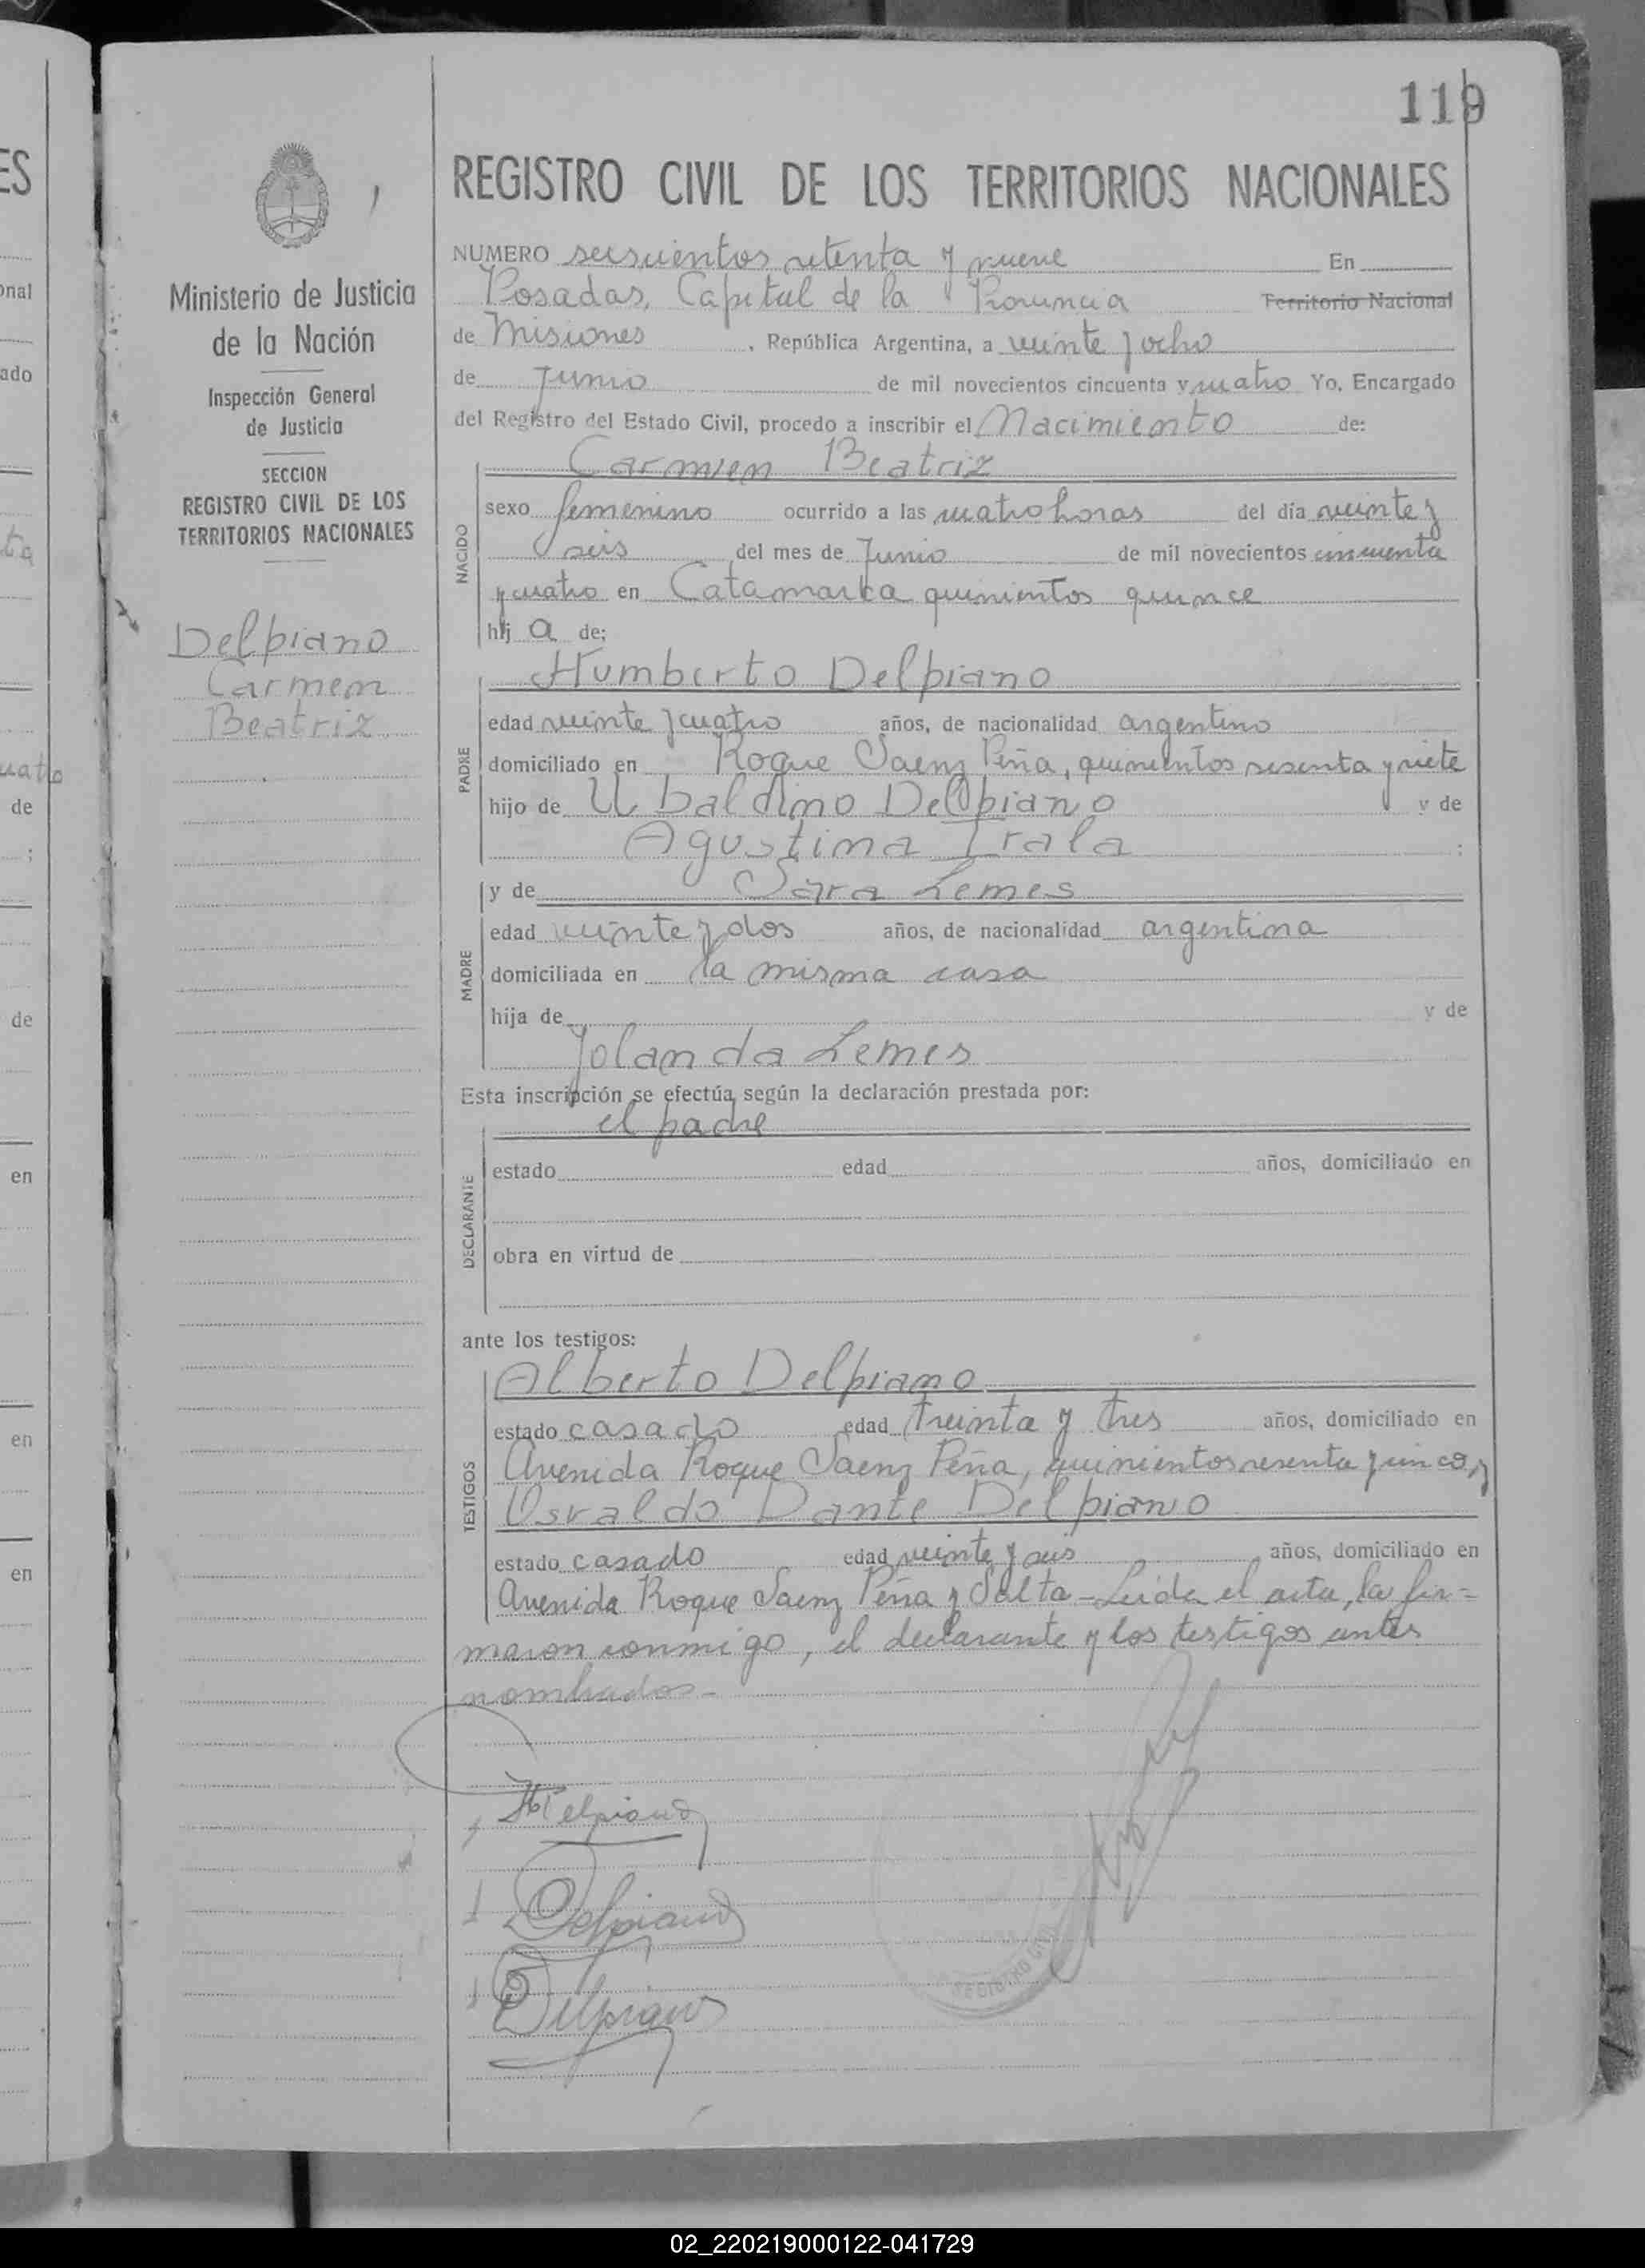 119
REGISTRO CIVIL DE LOS TERRITORIOS NACIONALES
Ministerio de Justicia
de la Nación
Inspección General
de Justicia
SECCION
REGISTRO CIVIL DE LOS
TERRITORIOS NACIONALES
Delpiano
Carmen
Beatriz
NUMERO seiscientos setenta y nueve En
Posadas, Capital de la Provincia Territorio Nacional
de Misiones , República Argentina, a veinte y ocho
de Junio de mil novecientos cincuenta y cuatro Yo, Encargado
del Registro del Estado Civil, procedo a inscribir el Nacimiento de:
Carmen Beatriz
NACIDO
sexo femenino ocurrido a las cuatro horas del día veinte y
seis del mes de Junio de mil novecientos cincuenta
y cuatro en Catamarca quinientos quince
hij a de;
Humberto Delpiano
PADRE
edad veinte y cuatro años, de nacionalidad argentino
domiciliado en Roque Saenz Peña, quinientos sesenta y siete
hijo de Ubaldino Delpiano y de
Agustina Irala ;
y de Sara Lemes
MADRE
edad veinte y dos años, de nacionalidad argentina
domiciliada en la misma casa
hija de y de
Yolanda Lemes
Esta inscripción se efectúa según la declaración prestada por:
el padre
DECLARANTE
estado edad años, domiciliado en
obra en virtud de
ante los testigos:
Alberto Delpiano
TESTIGOS
estado casado edad treinta y tres años, domiciliado en
Avenida Roque Saenz Peña, quinientos sesenta y cinco, y
Osvaldo Dante Delpiano
estado casado edad veinte y seis años, domiciliado en
Avenida Roque Saenz Peña y Salta - Leída el acta, la fir=
maron conmigo, el declarante y los testigos antes
nombrados -
HDelpiano
Delpiano
Delpiano
REGISTRO CIVIL
02_220219000122-041729